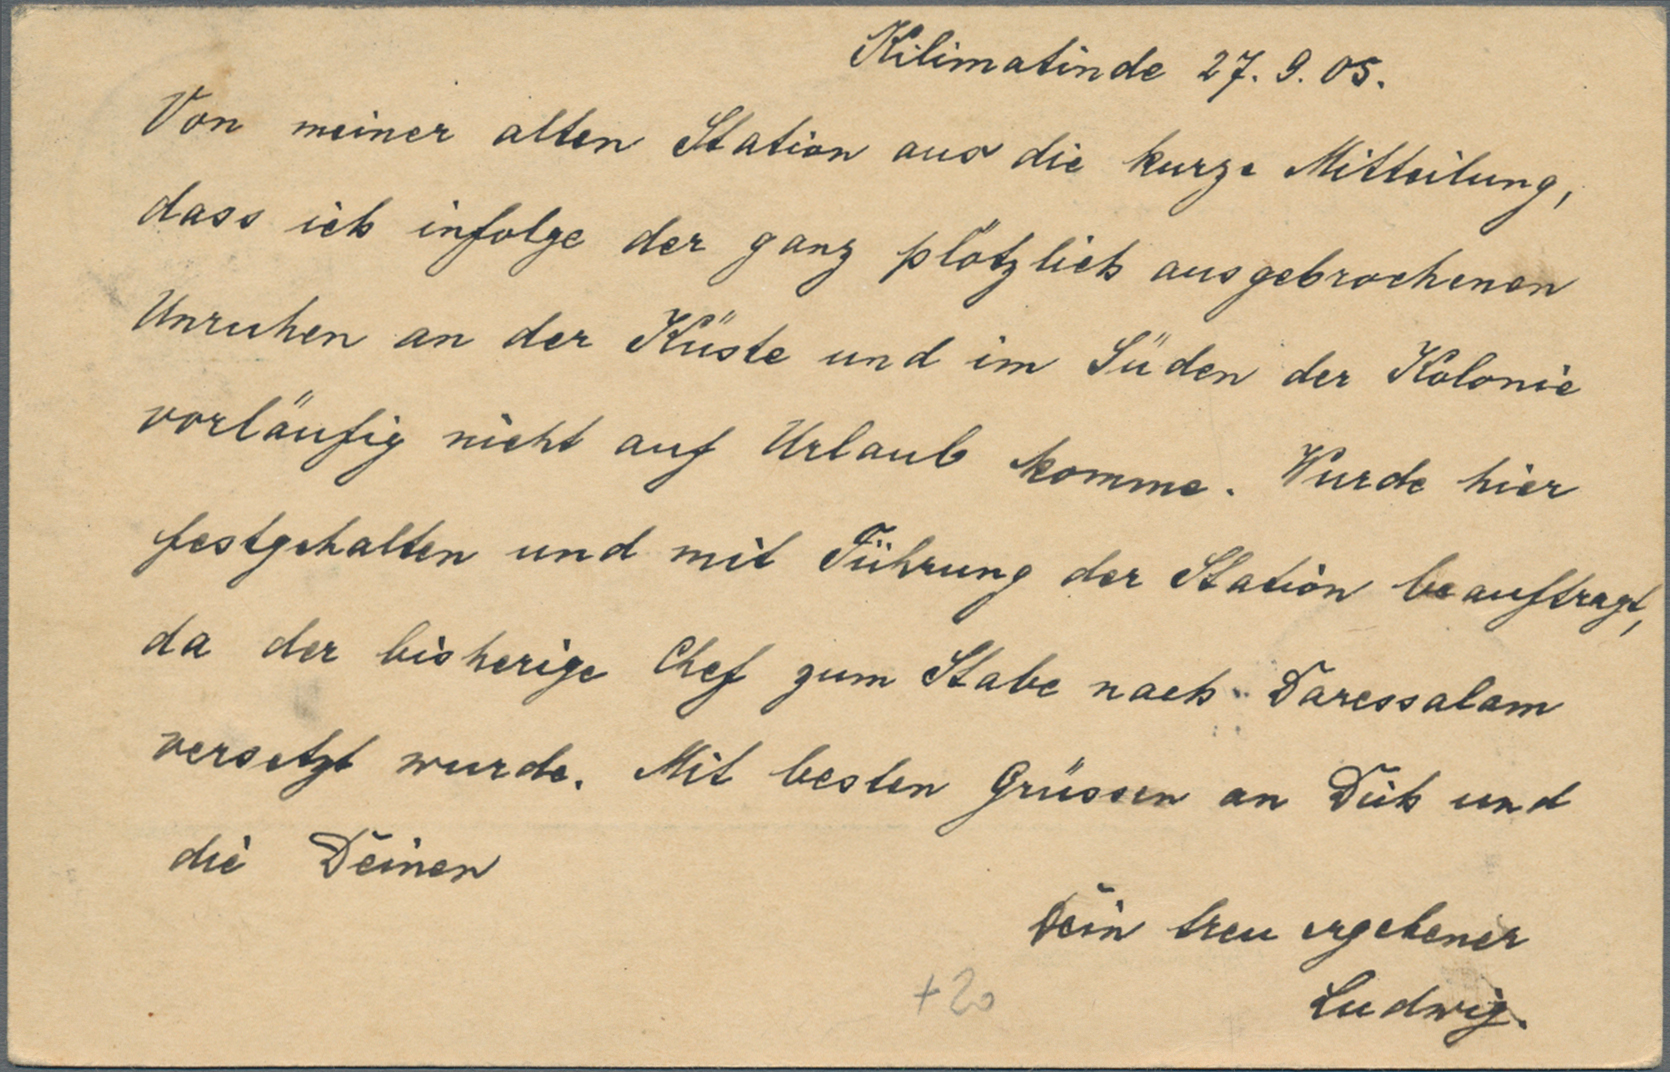 Kilimatinde 27. 9. 05.
Von meiner alten Station aus die kurze Mitteilung,
dass ich infolge der ganz plötzlich ausgebrochenen
Unruhen an der Küste und im Süden der Kolonie
vorläufig nicht auf Urlaub komme. Wurde hier
festgehalten und mit Führung der Station beauftragt,
da der bisherige Chef zum Stabe nach Daressalam
versetzt wurde. Mit besten Grüssen an Dich und
die Deinen
Dein treu ergebener
Ludwig.
+20